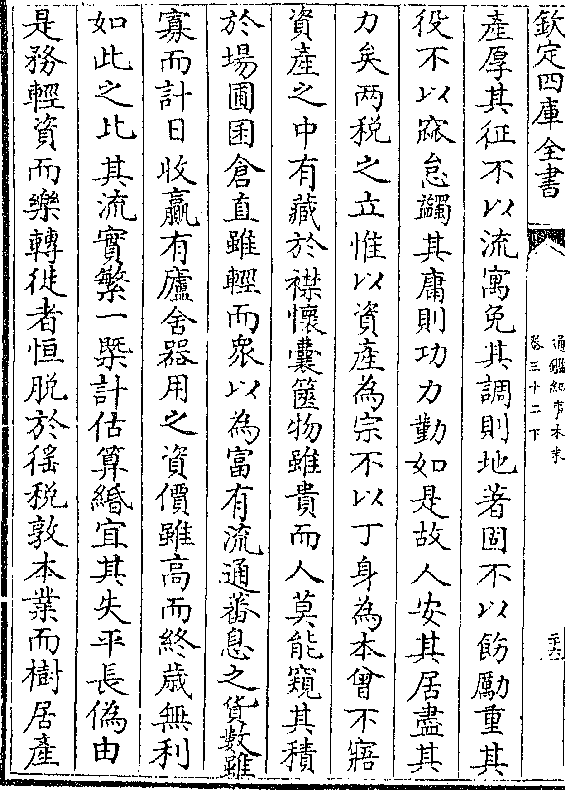 欽定四庫全書
通鑑紀事本末
卷三十二下
二十六
產厚其征不以流寓免其調則地著固不以飭勵重其
役不以窳怠蠲其庸則功力勤如是故人安其居盡其
力矣兩税之立惟以資產為宗不以丁身為本曾不寤
資產之中有藏於襟懷囊篋物雖貴而人莫能窺其積
於場圃囷倉直雖輕而衆以為富有流通蕃息之貨數雖
寡而計日收贏有廬舍器用之資價雖高而終歲無利
如此之比其流實繁一槩計估算緡宜其失平長偽由
是務輕資而樂轉徙者恒脱於徭税敦本業而樹居產